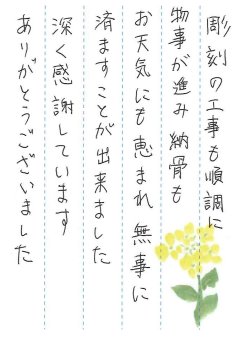 彫刻の工事も順調に
物事が進み納骨も
お天気にも恵まれ無事に
済ますことが出来ました
深く感謝しています
ありがとうございました